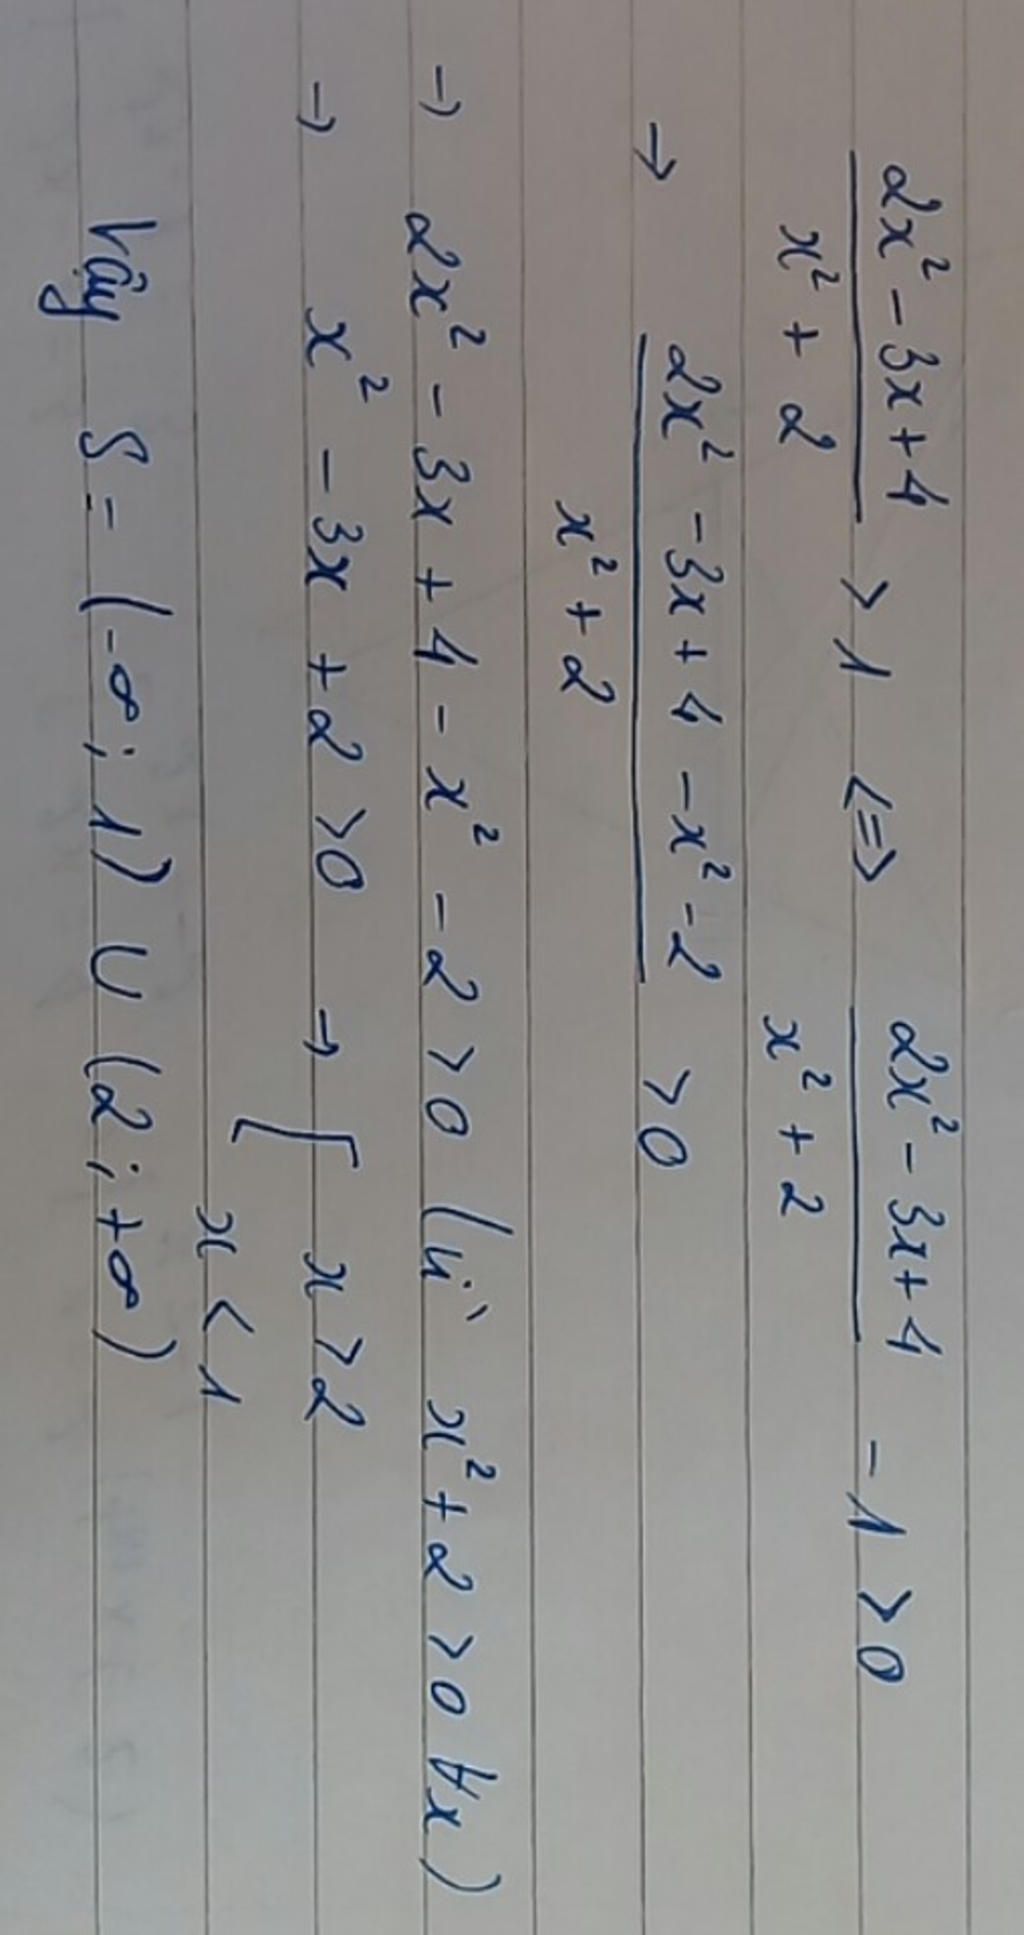 (2x² - 3x + 4)/(x² + 2) > 1 <=> (2x² - 3x + 4)/(x² + 2) - 1 > 0
→ (2x² - 3x + 4 - x² - 2)/(x² + 2) > 0
→ 2x² - 3x + 4 - x² - 2 > 0 (vì x² + 2 > 0 ∀x)
→ x² - 3x + 2 > 0 → [ x > 2
x < 1
Vậy S = (-∞; 1) ∪ (2; +∞)